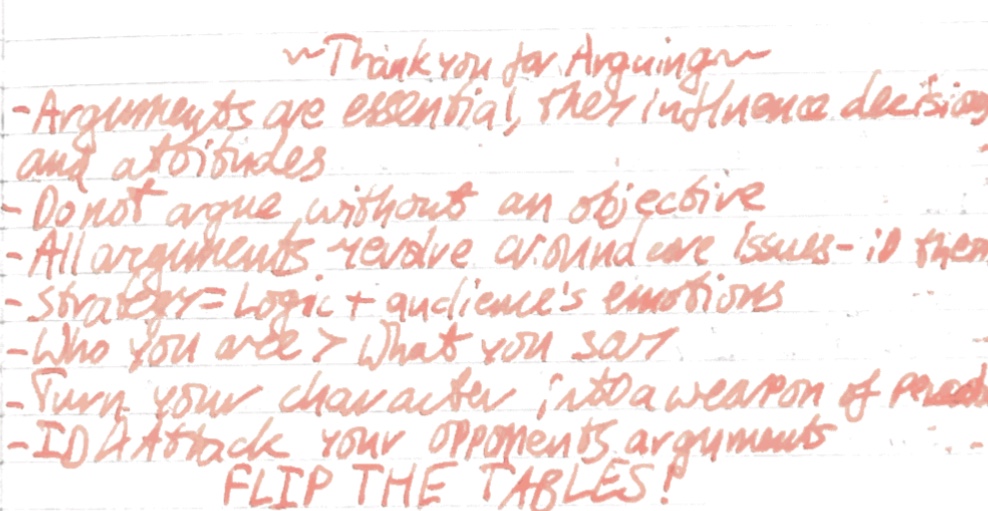 ~Thank you for Arguing~
-Arguments are essential, they influence decisions
and attitudes
-Do not argue without an objective
-All arguments revolve around core issues-ID them
-Strategy=Logic+audience's emotions
-Who you are>What you say
-Turn your character into a weapon of
-ID & Attack your opponents arguments
FLIP THE TABLES!